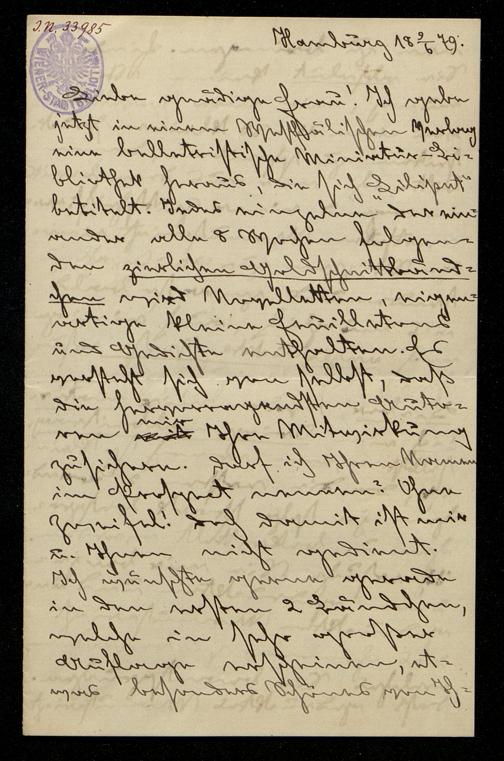 J.N. 33985
WIENER-STADT-BIBLIOTHEK
Hamburg 18 9/6 79.
gnädige Frau! Ich gebe
jetzt in einem Westfälischen Verlag
eine belletristische Miniatur-Bi-
bliothek heraus, die sich „Liliput“
betitelt. Jedes einzelne der ein-
ander alle 8 Wochen folgen-
den zierlichen Goldschnittbänd-
chen wird Novelletten, eigen-
artige kleine Feuilletons
und Gedichte enthalten. Es
versteht sich von selbst, daß
die hervorragendsten Auto-
ren mir Ihre Mitwirkung
zusichern. Darf ich Ihren Namen
im Prospect nennen? Ohne
Zweifel. Doch damit ist mir
u. Ihnen nicht gedient.
Ich wünschte gerne gerade
in den ersten 2 Bändchen,
welche in sehr großer
Auflage erscheinen, et-
was besonders Schönes von Ih-